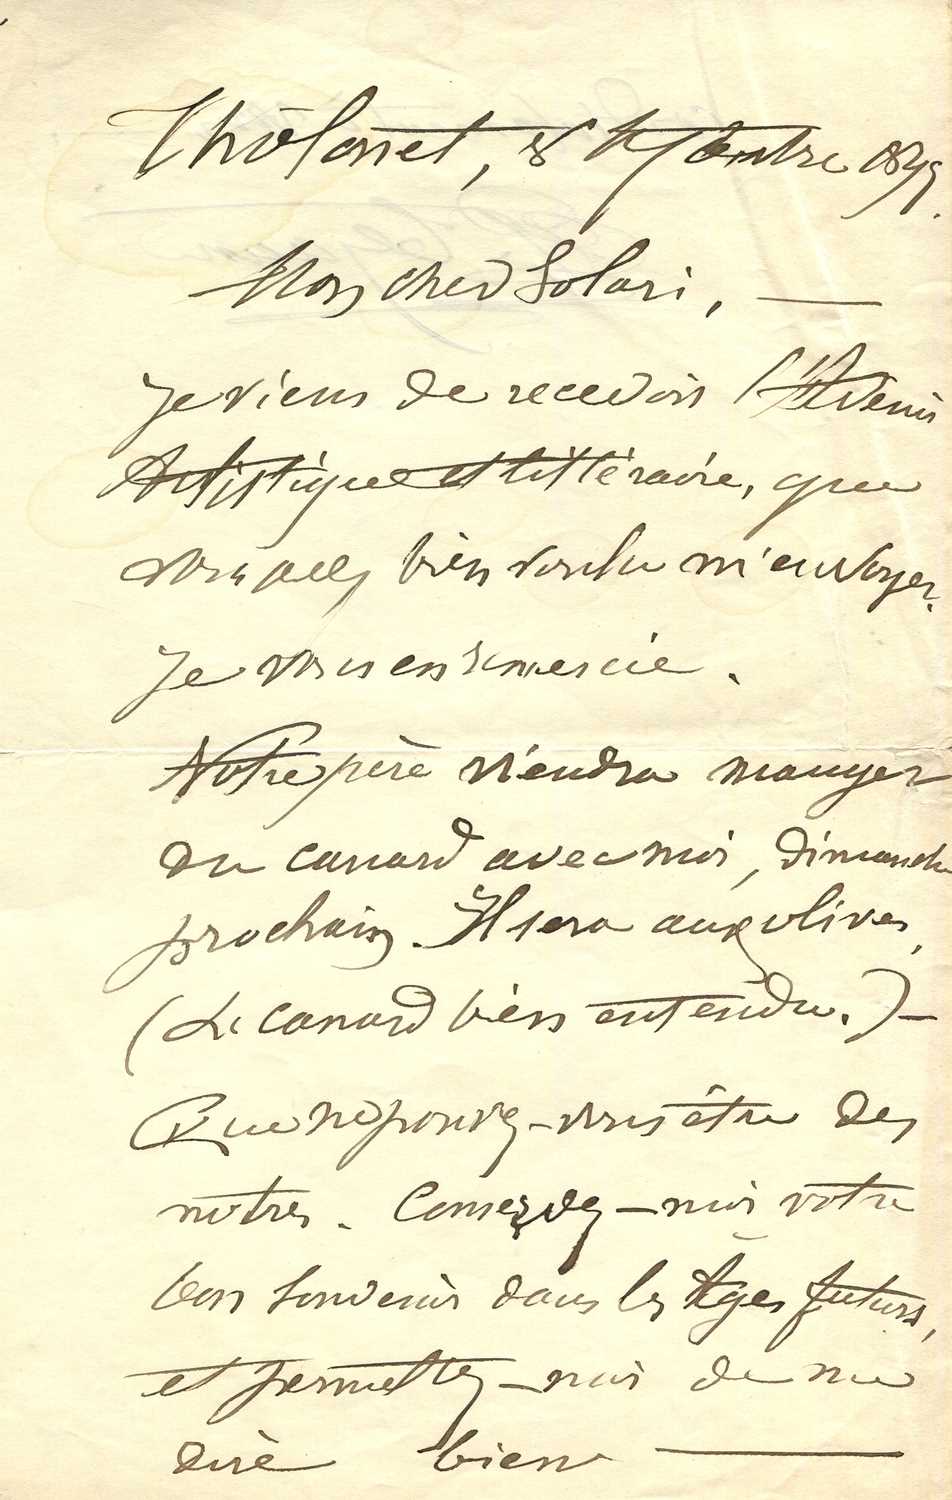 Thôlonet, 8 septembre 1899.
Mon cher Solari, —
Je viens de recevoir l'Avenir
Artistique et Littéraire, que
vous avez bien voulu m'envoyer.
Je vous en remercie.
Votre père viendra manger
du canard avec moi, dimanche
prochain. Il sera aux olives,
(Le canard bien entendu.) —
Que ne pouvez-vous être des
nôtres. Conservez-moi votre
bon souvenir dans les âges futurs,
et permettez-moi de me
dire bien —